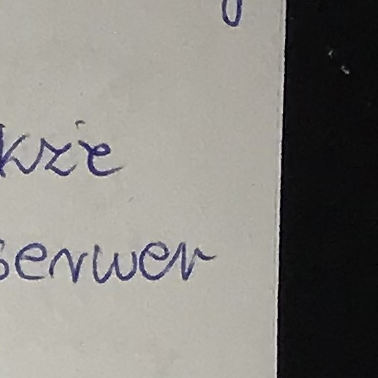 kże
serwer